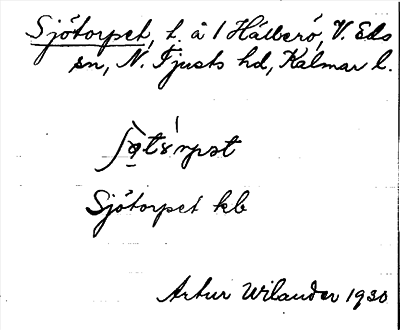 Sjötorpet, t. å 1 Hälberö, V. Eds
sn, N. Tjusts hd, Kalmar l.
Sjötorpet kb
Artur Wilander 1930